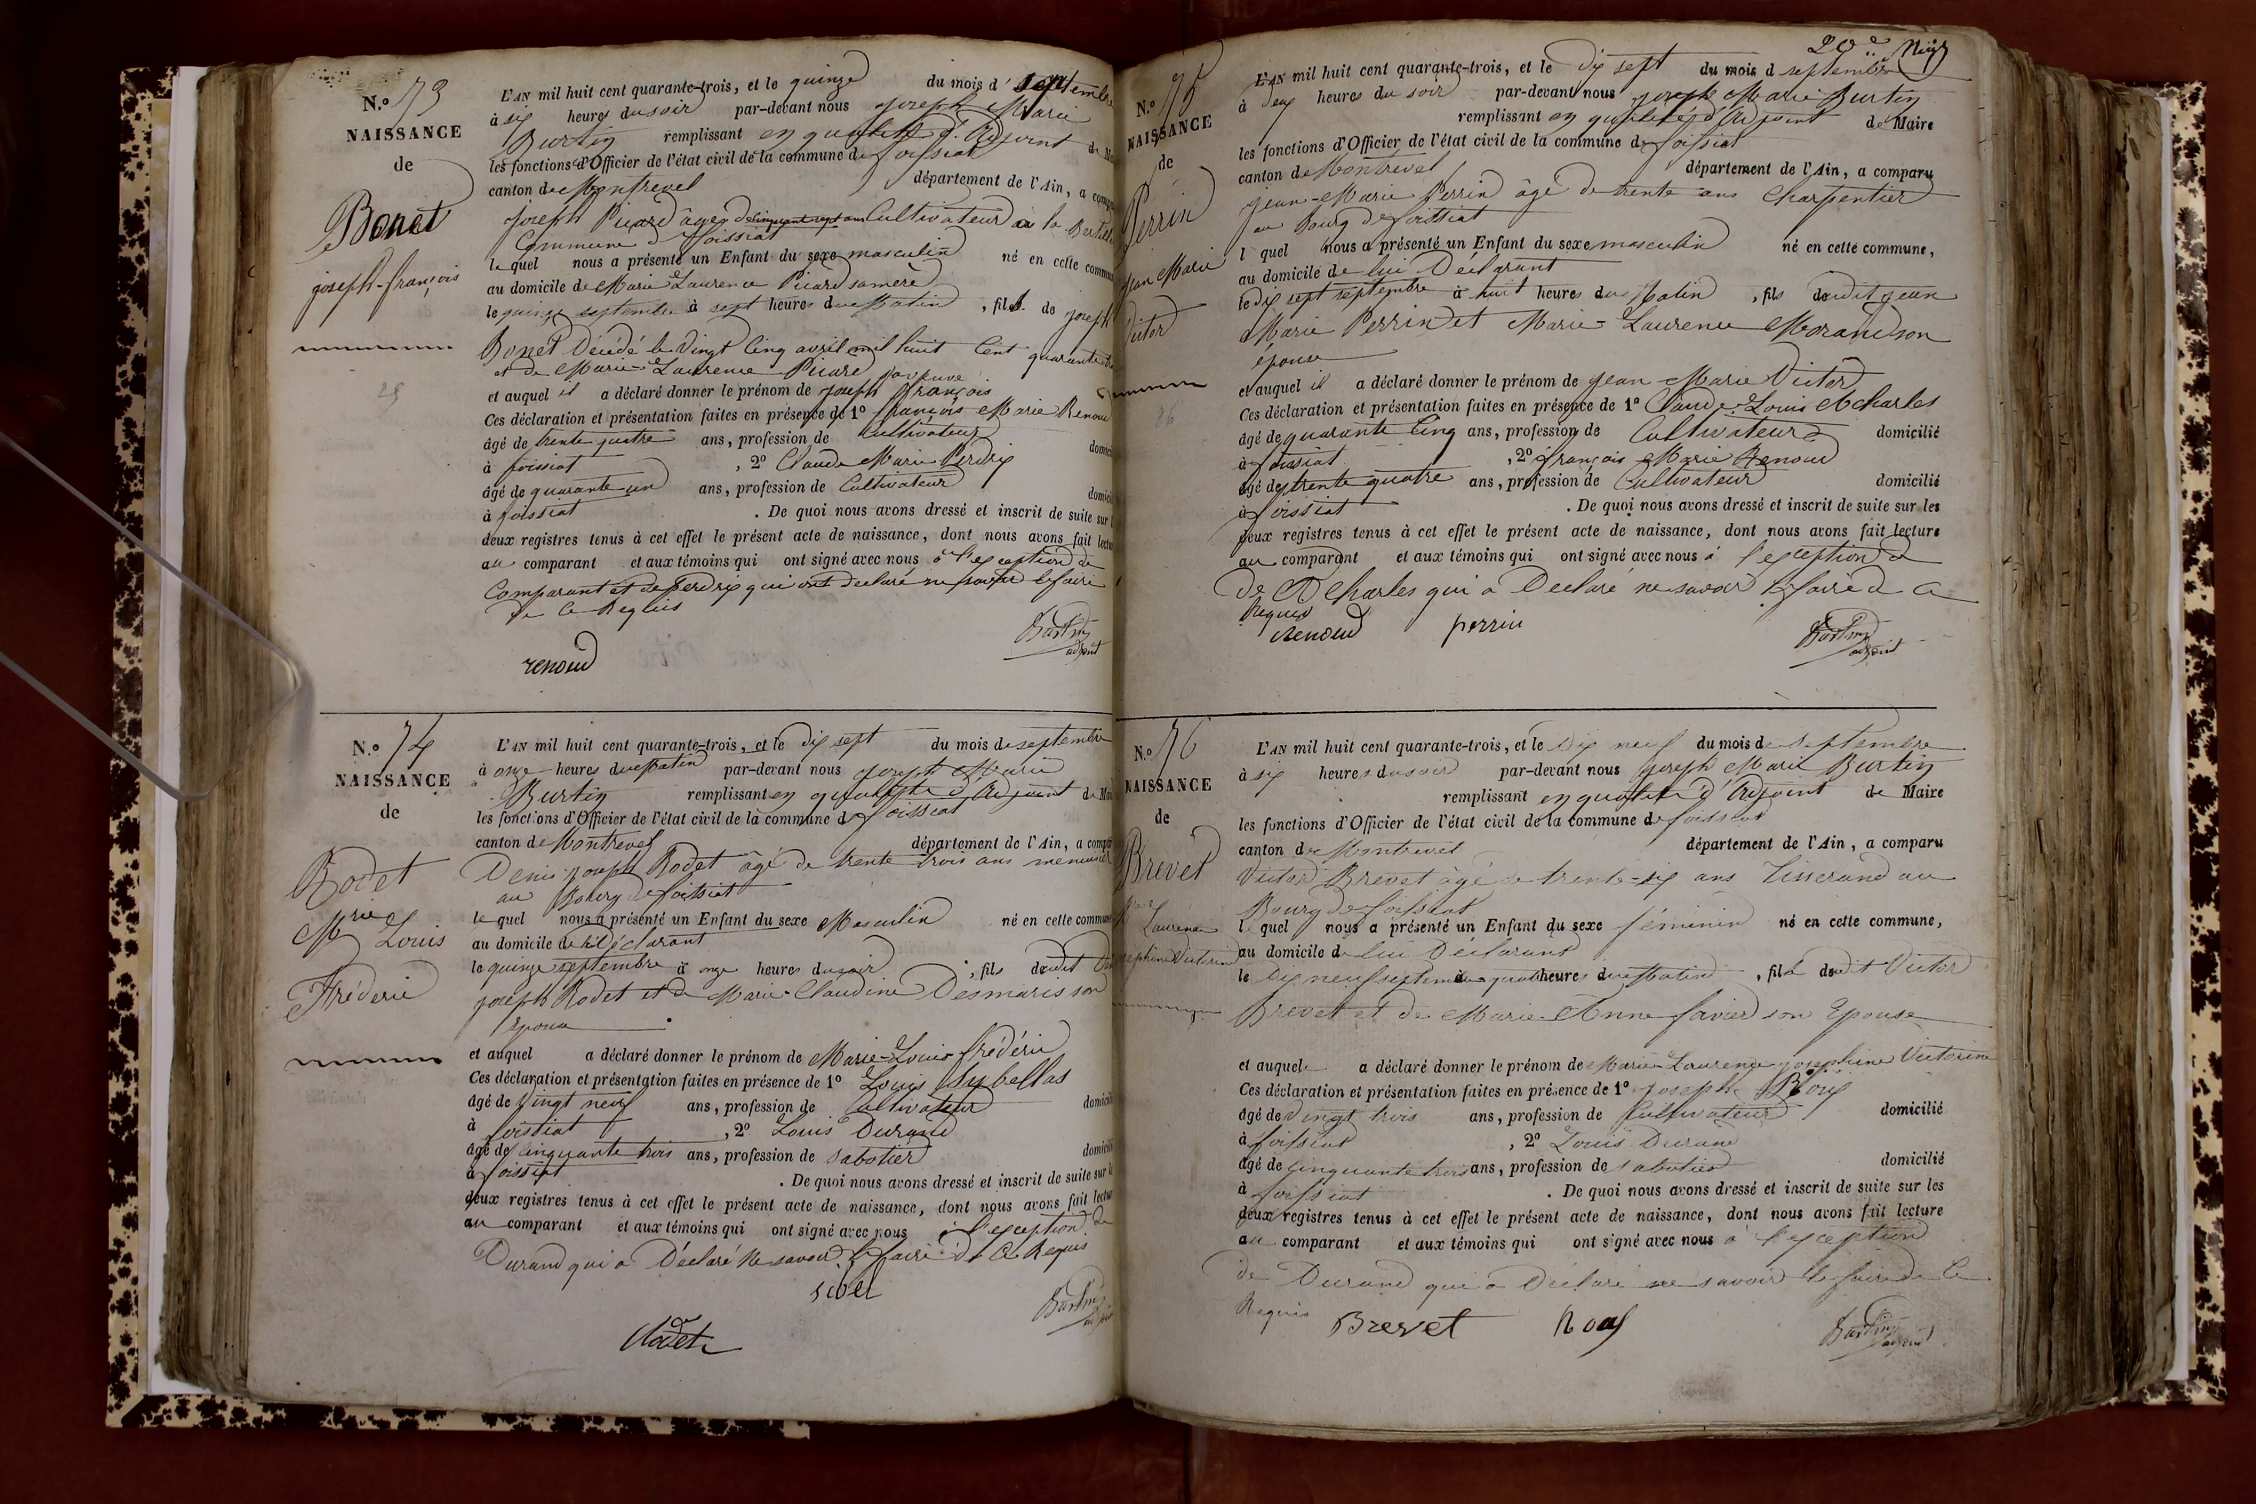 N.o 73
NAISSANCE
de
Bonet
joseph-françois
L'AN mil huit cent quarante-trois, et le quinze du mois d' septembre
à six heures du soir par-devant nous joseph Marie
Burtin remplissant en qualité d'Adjoint de
les fonctions d'Officier de l'état civil de la commune de foissiat
canton de Montrevel département de l'Ain, a
joseph Picard âgé de cinquante sept ans Cultivateur à la
Commune de foissiat
le quel nous a présenté un Enfant du sexe masculin né en cette
au domicile de Marie Laurence Picard sa mere
le quinze septembre à sept heures du Matin, fils de joseph
Bonet Décédé le vingt Cinq avril mil huit Cent quarante
et de Marie-Laurence Picard sa veuve
et auquel il a déclaré donner le prénom de joseph françois
Ces déclaration et présentation faites en présence de 1o françois Marie Renoud
âgé de trente quatre ans, profession de Cultivateur
à foissiat, 2o Claude Marie Perdrix
âgé de quarante un ans, profession de Cultivateur
à foissiat. De quoi nous avons dressé et inscrit de suite sur
deux registres tenus à cet effet le présent acte de naissance, dont nous avons fait
au comparant et aux témoins qui ont signé avec nous à l'exception de
Comparant et de Perdrix qui ont declaré ne savoir le faire
de Ce Requis
renoud
Burtin
adjoint
N.o 74
NAISSANCE
de
Rodet
Mrie Louis
Fréderic
L'AN mil huit cent quarante-trois, et le dix sept du mois de septembre
à onze heures du Matin par-devant nous joseph Marie
Burtin remplissant en qualité d'Adjoint de
les fonctions d'Officier de l'état civil de la commune de foissiat
canton de Montrevel département de l'Ain, a
Denis joseph Rodet âgé de trente trois ans menuisier
au Bourg de foissiat
le quel nous a présenté un Enfant du sexe Masculin né en cette commune
au domicile de lui Déclarant
le quinze septembre à onze heures du soir, fils dudit
joseph Rodet et de Marie-Claudine Desmaris son
épouse
et auquel a déclaré donner le prénom de Marie-Louis frédéric
Ces déclaration et présentation faites en présence de 1o Louis Sybellas
âgé de vingt neuf ans, profession de Cultivateur
à foissiat, 2o Louis Durand
âgé de cinquante trois ans, profession de sabotier
à foissiat. De quoi nous avons dressé et inscrit de suite sur
deux registres tenus à cet effet le présent acte de naissance, dont nous avons fait
au comparant et aux témoins qui ont signé avec nous à l'exception de
Durand qui a Déclaré Ne savoir le faire de Ce Requis
Rodet
Burtin
N.o 75
NAISSANCE
de
Perrin
jean Marie
Victor
20e
L'AN mil huit cent quarante-trois, et le dix sept du mois d septembre
à deux heures du soir par-devant nous joseph Marie Burtin
remplissant en qualité d'Adjoint de Maire
les fonctions d'Officier de l'état civil de la commune de foissiat
canton de Montrevel département de l'Ain, a comparu
jean-Marie Perrin âgé de trente ans Charpentier
au Bourg de foissiat
l quel nous a présenté un Enfant du sexe masculin né en cette commune,
au domicile de lui Déclarant
le dix sept septembre à huit heures du Matin, fils dudit jean
Marie Perrin et Marie-Laurence Morand son
épouse
et auquel il a déclaré donner le prénom de jean-Marie Victor
Ces déclaration et présentation faites en présence de 1o Claude-Louis Acharles
âgé de quarante Cinq ans, profession de Cultivateur domicilié
à foissiat, 2o françois Marie Renoud
âgé de trente quatre ans, profession de Cultivateur domicilié
à foissiat. De quoi nous avons dressé et inscrit de suite sur les
deux registres tenus à cet effet le présent acte de naissance, dont nous avons fait lecture
au comparant et aux témoins qui ont signé avec nous à l'exception d
de Acharles qui a Declaré ne savoir le faire de Ce
Requis
renoud perrin
Burtin
adjoint
N.o 76
NAISSANCE
de
Brevet
Laurence
josephine Victorine
L'AN mil huit cent quarante-trois, et le dix neuf du mois de septembre
à six heures du soir par-devant nous joseph Marie Burtin
remplissant en qualité d'Adjoint de Maire
les fonctions d'Officier de l'état civil de la commune de foissiat
canton de Montrevel département de l'Ain, a comparu
Victor Brevet âgé de trente-six ans Tisserand au
Bourg de foissiat
le quel nous a présenté un Enfant du sexe féminin né en cette commune,
au domicile de lui Déclarant
le dix neuf septembre à quatre heures du Matin, fille dudit Victor
Brevet et de Marie-Anne favier son Epouse
et auquel a déclaré donner le prénom de Marie-Laurence josephine Victorine
Ces déclaration et présentation faites en présence de 1o joseph Roux
âgé de vingt trois ans, profession de Cultivateur domicilié
à foissiat, 2o Louis Durand
âgé de cinquante trois ans, profession de sabotier domicilié
à foissiat. De quoi nous avons dressé et inscrit de suite sur les
deux registres tenus à cet effet le présent acte de naissance, dont nous avons fait lecture
au comparant et aux témoins qui ont signé avec nous à l'exception
de Durand qui a Déclaré ne savoir le faire de Ce
Requis
Brevet
Burtin
adjoint